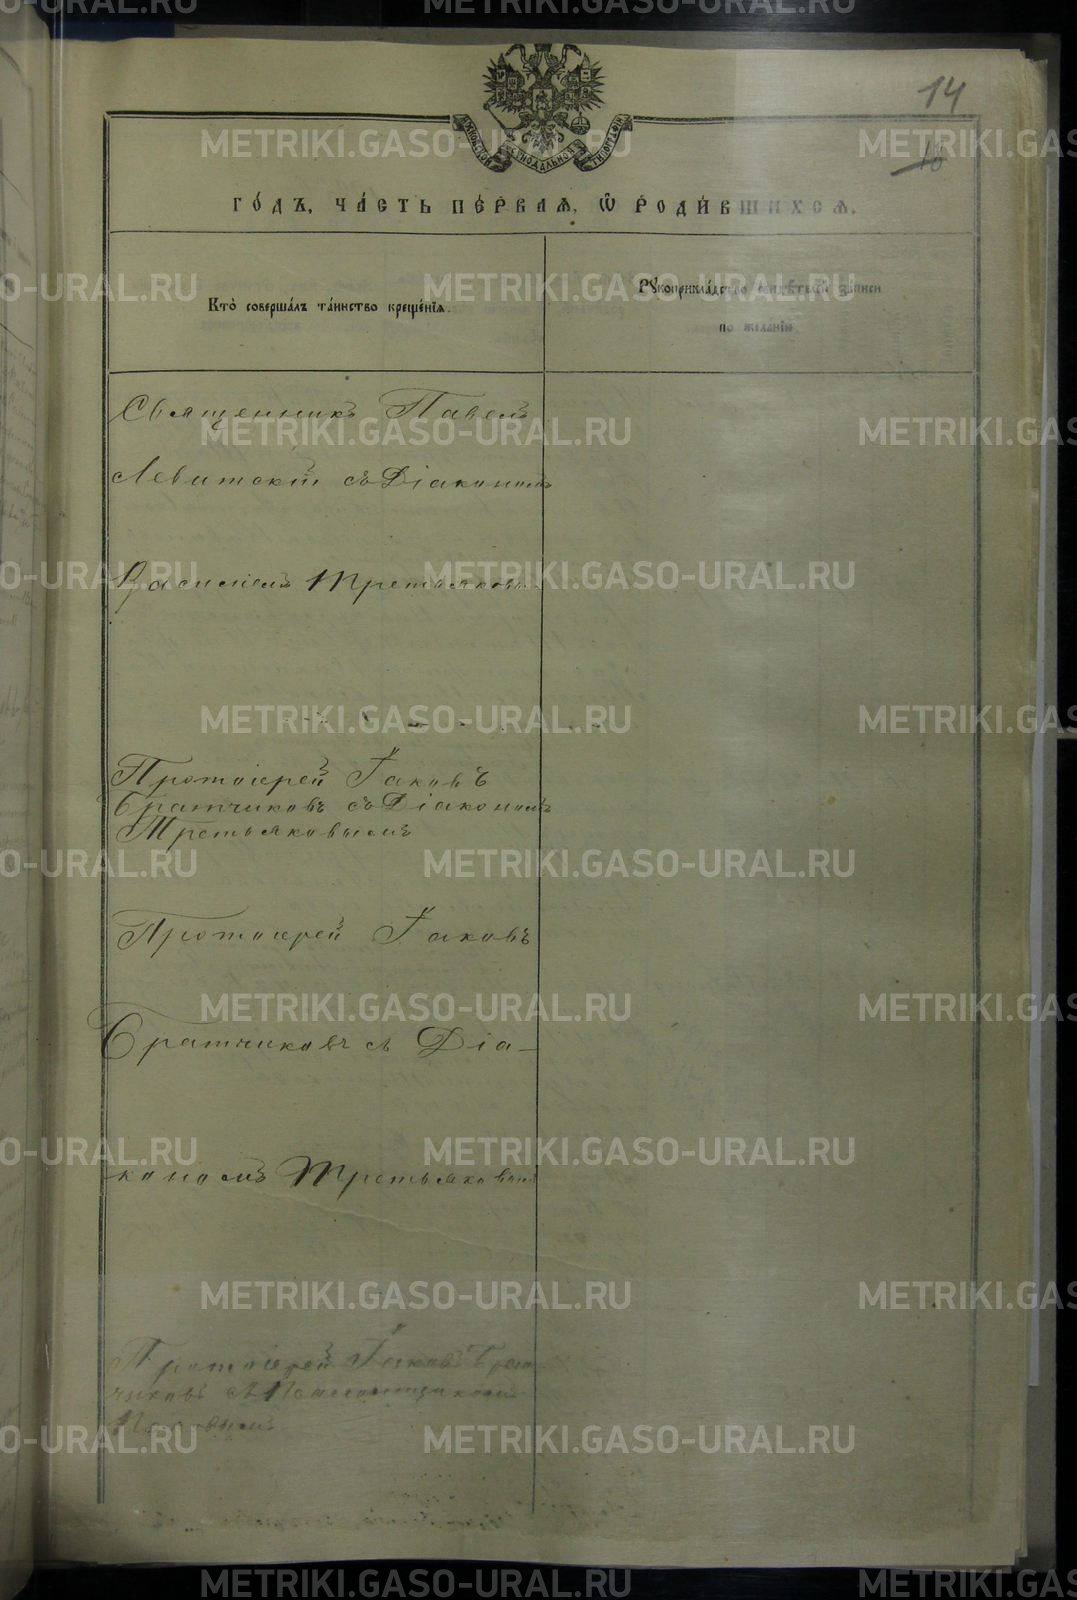 14
16
МОСКОВСКОЙ СѴНОДАЛЬНОЙ ТИПОГРАФІИ
ГО́ДЪ, ЧА́СТЬ ПЕ́РВАѦ, Ѿ РОДИ́ВШИХСѦ.
Кто̀ соверша́лъ та́инство креще́нїѧ.
Рꙋкоприкла́дство свидѣ́телей за́писи
по жела́нїю
Священникъ Павелъ
Левитскій съ Діакономъ
Василіемъ Третьяковы
Протоіерей Іаковъ
Братчиковъ съ Діакономъ
Третьяковымъ
Протоіерей Іаковъ
Братчиковъ съ Діа-
кономъ Третьяковым
Протоіерей Іаковъ Брат
чиковъ съ Псаломщикомъ
METRIKI.GASO-URAL.RU